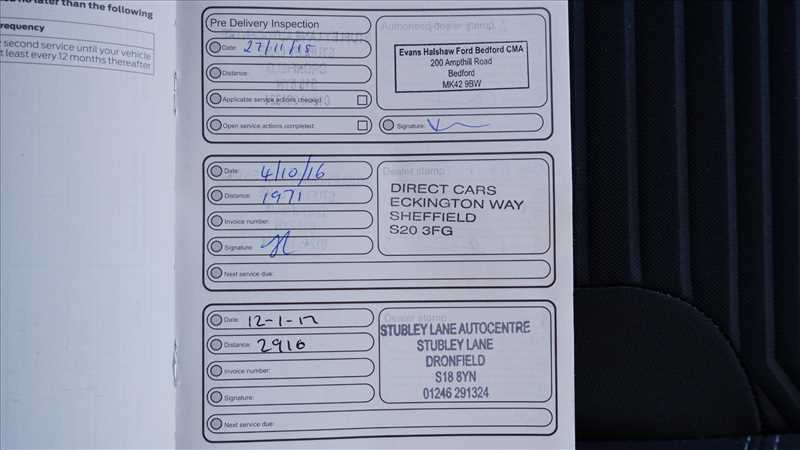 ed no later than the following
requency
second service until your vehicle
t least every 12 months thereafter
Pre Delivery Inspection
Date: 27/11/15
Distance:
Applicable service actions checked
Open service actions completed:
Authorised dealer stamp
Evans Halshaw Ford Bedford CMA
200 Ampthill Road
Bedford
MK42 9BW
Signature:
Date: 4/10/16
Distance: 1971
Invoice number:
Signature:
Next service due:
Dealer stamp
DIRECT CARS
ECKINGTON WAY
SHEFFIELD
S20 3FG
Date: 12-1-17
Distance: 2916
Invoice number:
Signature:
Next service due:
Dealer stamp
STUBLEY LANE AUTOCENTRE
STUBLEY LANE
DRONFIELD
S18 8YN
01246 291324